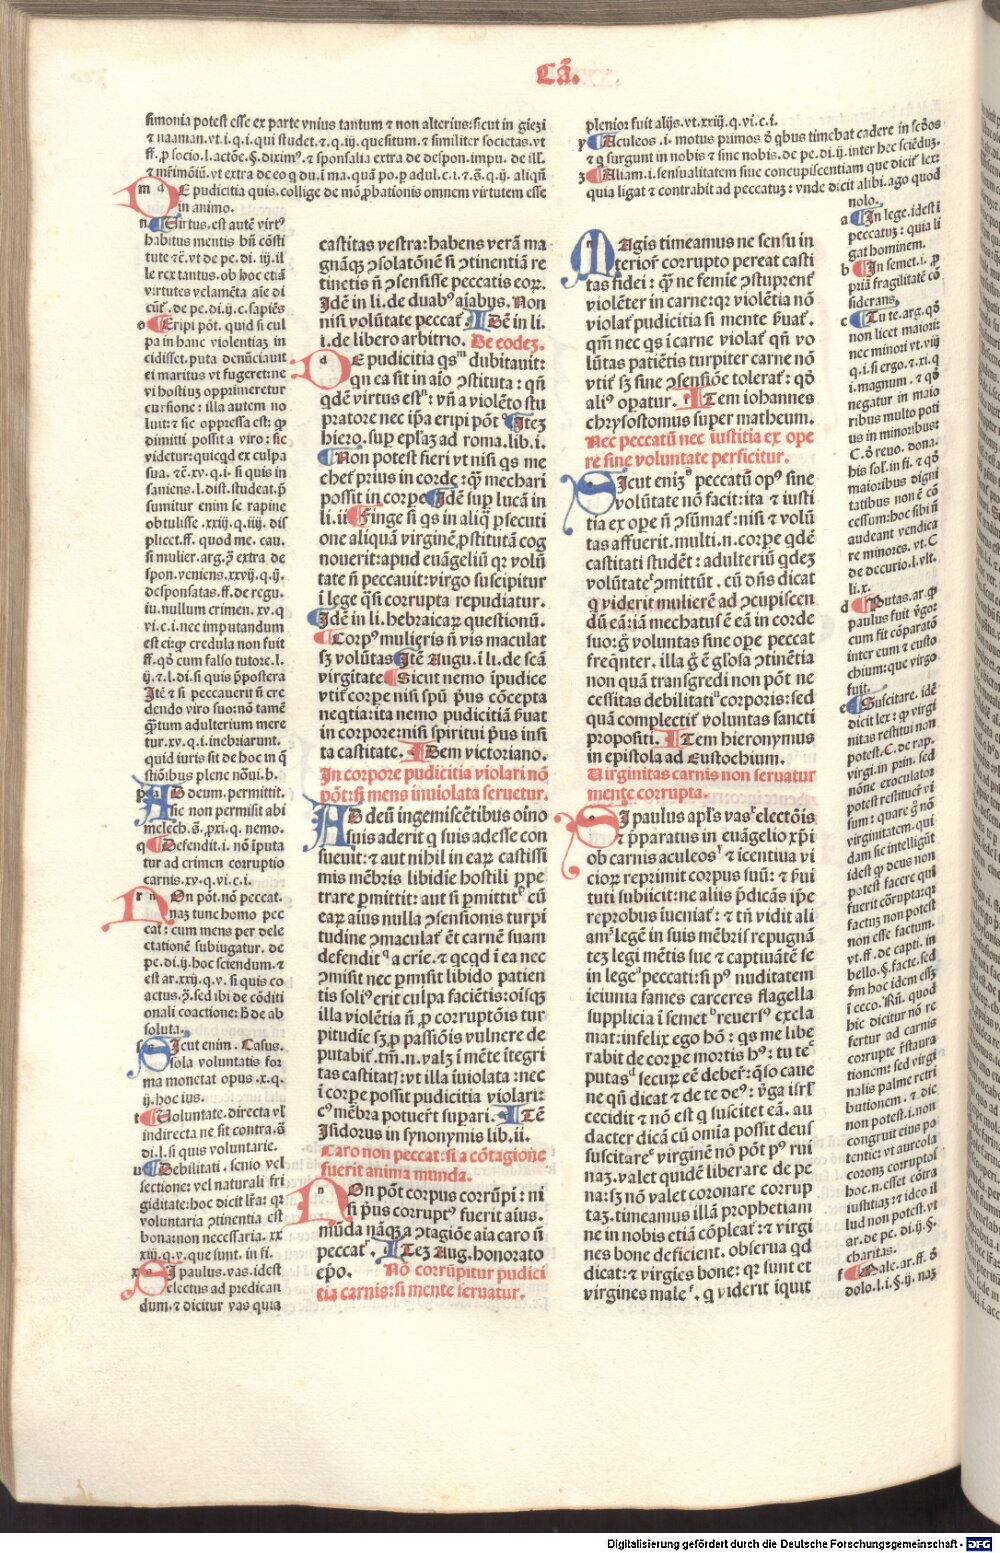 Cā.
simonia potest esse ex parte vnius tantum ⁊ non alterius: sicut in giezi
⁊ naaman. vt. i. q. i. qui studet. ⁊. q. iij. quesitum. ⁊ similiter societas. vt
ff. ꝓ socio. l. actōe. §. diximꝰ. ⁊ sponsalia extra de despon. impu. de ill.
⁊ mr̄imōiū. vt extra de eo q du. i ma. quā po. ꝑ adul. c. i. ⁊. q. ij. aliqn̄
m DE pudicitia quis. collige de mō ꝓbationis omnem virtutem esse
in animo.
n Uirtus. est autē virtꝰ
habitus mentis bn̄ cōsti
tute ⁊c̄. vt de pe. di. iij. il
le rex tantus. ob hoc etiā
virtutes velamēta aīe di
cūt. de pe. di. ij. c. sapiēs
o Eripi pōt. quid si cul
pa in hanc violentiaꝫ in
cidisset. puta denūciauit
ei maritus vt fugeret: ne
vi hostiuꝫ opprimeretur
cursione: illa autem no
luit: ⁊ sic oppressa est: ꝙ
dimitti possit a viro: sic
videtur: quicqd ex culpa
sua. ⁊c̄. xv. q. i. si quis in
saniens. l. dist. studeat. ꝑ
sumitur enim se rapine
obtulisse. xxiij. q. iiij. dis
plicet. ff. quod me. cau.
si mulier. arg. ꝯ̄ extra de
spon. veniens. xxvij. q. ij.
desponsatas. ff. de regu.
iu. nullum crimen. xv. q
vi. c. i. nec imputandum
est ei: ꝙ credula non fuit
ff. qð cum falso tutore. l.
ij. ⁊. l. di. si quis p̄postera
Itē ⁊ si peccauerit n̄ cre
dendo viro suo: nō tamē
ꝙ̄tum adulterium mere
tur. xv. q. i. inebriarunt.
quid iuris sit de hoc in q̄
stiōibus plene nōui. b.
p AD deum. permittit.
sic non permisit abi
melech. s̄. ꝓxi. q. nemo.
q Defendit. i. nō īputa
tur ad crimen corruptio
carnis. xv. q. vi. c. i.
r NOn pōt. nō peccat.
naꝫ tunc homo pec
cat: cum mens per dele
ctationē subiugatur. de
pe. di. ij. hoc sciendum. ⁊
est ar. xxij. q. v. si quis co
actus. ꝯ̄. sed ibi de cōditi
onali coactione: h̄ de ab
soluta.
s SIcut enim. Casus.
sola voluntatis for
ma monctat opus. x. q.
ij. hoc ius.
t Uoluntate. directa vl̄
indirecta ne sit contra. s̄
di. l. si quis voluntarie.
u Debilitati. senio vel
sectione: vel naturali fri
giditate: hoc dicit lr̄a: q̄
voluntaria ↄtinentia est
bona: non necessaria. xx
xiij. q. v. que sunt. in fi.
x SI paulus. vas. idest
electus ad predican
dum. ⁊ dicitur vas quia
castitas vestra: habens verā ma
gnāqꝫ ↄsolatōnē si ↄtinentiā re
tinetis n̄ ↄsensisse peccatis eoꝝ.
Idē in li. de duabꝰ aīabus. Non
nisi volūtate peccat̄. IDē in li.
i. de libero arbitrio. De eodeꝫ.
DE pudicitia qsᵐ dubitauit:
qn ea sit in aīo ↄstituta: qn̄
qdē virtus estⁿ: vn̄ a violēto stu
pratore nec ip̄a eripi pōt Iteꝫ
hiero. suꝑ epl̄aꝫ ad roma. lib. i.
Non potest fieri vt nisi qs me
chet̄ prius in corde: ꝙ̄ mechari
possit in corpe Idē suꝑ lucā in
li. ii Finge si qs in aliq̄ ꝑsecuti
one aliquā virginē ꝓstitutā cog
nouerit: apud euāgeliū qꝛ volū
tate n̄ peccauit: virgo suscipitur
ī lege q̄si corrupta repudiatur.
Idē in li. hebraicaꝝ questionū.
Corpꝰ mulieris n̄ vis maculat
sꝫ volūtas Itē Augu. ī li. de scā
virgitate Sicut nemo īpudice
vtit̄ corpe nisi spū p̄us cōcepta
neqtia: ita nemo pudicitiā ẜuat
in corpore: nisi spiritui p̄us insi
ta castitate. IDem victoriano.
In corpore pudicitia violari nō
pōt: si mens inuiolata seruetur.
AD deū ingemiscētibus oīno
suis aderit q suis adesse con
sueuit: ⁊ aut nihil in eaꝝ castissi
mis mēbris libidie hostili ꝑpe
trare ꝑmittit: aut si ꝑmittitʳ cū
eaꝝ aīus nulla ↄsensionis turpi
tudine ↄmaculat̄ ēt carnē suam
defenditᑫ a crīe. ⁊ qcqd ī ea nec
ↄmisit nec ꝑmisit libido patien
tis soliꝰ erit culpa faciētis: oīsqꝫ
illa violētia n̄ ꝓ corruptōis tur
pitudie sꝫ ꝓ passiōis vulnere de
putabit̄. tm̄. n. valꝫ ī mēte ītegri
tas castitatꝭ: vt illa īuiolata: nec
ī corꝑe possit pudicitia violari:
cꝰ mēbra potuer̄t suꝑari. ITē
Isidorus in synonymis lib. ii.
Caro non peccat: si a cōtagione
fuerit anima munda.
NOn pōt corpus corrūpi: ni
si p̄us corruptꝰ fuerit aīus.
mūda nāqꝫ a ↄtagiōe aīa caro n̄
peccatʳ. ITeꝫ Aug. honorato
ep̄o. Nō corrūpitur pudici
tia carnis: si mente seruatur.
MAgis timeamus ne sensu in
terior̄ corrupto pereat casti
tas fidei: ꝙ̄ ne femīe ↄstuprent̄
violēter in carne: qꝛ violētia nō
violat̄ pudicitia si mente ẜuat̄.
qm̄ nec qs ī carne violat̄ qn̄ vo
lūtas patiētis turpiter carne nō
vtit̄ sꝫ sine ↄsensiōe tolerat̄: qð
aliꝰ opatur. ITem iohannes
chrysostomus super matheum.
Nec peccatū nec iustitia ex ope
re sine voluntate perficitur.
SIcut eniꝫ peccatū opꝰ sine
volūtate nō facit: ita ⁊ iusti
tia ex ope n̄ ↄsūmat̄: nisi ⁊ volū
tas affuerit. multi. n. corꝑe qdeꝫ
castitati studēt: adulteriū qdeꝫ
volūtateᵗ ↄmittūt. cū dn̄s dicat
q viderit mulierē ad ↄcupiscen
dū eā: iā mechatus ē eā in corde
suo: ḡ voluntas sine ope peccat
freq̄nter. illa ḡ ē gl̄osa ↄtinētia
non quā transgredi non pōt ne
cessitas debilitatiᵘ corporis: sed
quā complectit̄ voluntas sancti
propositi. ITem hieronymus
in epistola ad Eustochium.
Uirginitas carnis non seruatur
mente corrupta.
SI paulus apl̄s vasˣ electōis
⁊ p̄paratus in euāgelio xp̄i
ob carnis aculeosʸ ⁊ īcentiua vi
cioꝝ reprimit corpus suū: ⁊ ẜui
tuti subiicit: ne aliis p̄dicās ip̄e
reprobus īueniat̄: ⁊ tn̄ vidit ali
amᶻ legē in suis mēbris repugnā
teꝫ legi mētis sue ⁊ captiuātē se
in legeᵃ peccati: si pꝰ nuditatem
ieiunia fames carceres flagella
supplicia ī semetᵇ reuersꝰ excla
mat: infelix ego hō: qs me libe
rabit de corꝑe mortis hꝰ: tu teᶜ
putasᵈ secuꝝ eē deber̄: q̄so caue
ne qn̄ dicat ⁊ de te deꝰ: v̄ga isrl̄
cecidit ⁊ nō est q suscitet eā. au
dacter dicā cū omīa possit deus
suscitareᵉ virginē nō pōt pꝰ rui
naꝫ. valet quidē liberare de pe
na: sꝫ nō valet coronare corrup
taꝫ. timeamus illā prophetiam
ne in nobis etiā cōpleat̄: ⁊ virgi
nes bone deficient. obserua qd
dicat: ⁊ virgies bone: qꝛ sunt et
virgines maleᶠ. q viderit iquit
plenior fuit alijs. vt. xxiij. q. vi. c. i.
y Aculeos. i. motus primos ō qbus timebat cadere in secōos
⁊ q surgunt in nobis ⁊ sine nobis. de pe. di. ij. inter hec sciēduꝫ.
z Aliam. i. sensualitatem siue concupiscentiam que dicit̄ lex:
quia ligat ⁊ contrabit ad peccatuꝫ: vnde dicit alibi. ago quod
nolo.
a In lege. idest i
peccatuꝫ: quia li
gat hominem.
b In semet. i. ꝓ
priā fragilitatē cō
siderans,
c Tu te. arg. qð
non licet maiori:
nec minori vt. viij
q. i. si ergo. ⁊. xi. q
i. magnum. ⁊ qð
negatur in maio
ribus multo poti
us in minoribus:
C. ō reuo. dona.
his sol. in fi. ⁊ qð
maioribus digni
tatibus non ē cō
cessum: hoc sibi n̄
audeant vendica
re minores. vt. C
de decurio. l. vlt.
li. x.
d Putas. ar. ꝙ
paulus fuit v̄gor
cum fit cōparatō
inter eum ⁊ eusto
chium: que virgo
fuit.
e Suscitare. idē
dicit lex: ꝙ virgi
nitas restitui non
potest. C. de rap.
virgi. in prin. sed
nōne exoculator
potest restituer̄ vi
sum: quare ḡ nō
virginitatem. qui
dam sic intelligūt
idest ꝙ deus non
potest facere qui
fuerit cōrrupta: q̄
factuꝫ non potest
non esse factum.
vt. ff. de capti. in
bello. §. facte. sed
ẜm hoc idem essꝫ
ī ceco. Rn̄. quod
hic dicitur nō re
fertur ad carnis
corrupte r̄staura
tionem: sed virgi
nalis palme retri
butionem. ⁊ dic
non potest. i. non
congruit eius po
tentie: vt aureola
coronꝫ corruptoꝭ
hoc. n. esset cōtra
iustitiaꝫ ⁊ ideo il
lud non potest. vt
ar. de pe. di. ij. §.
charitas.
f Male. ar. ff. ō
dolo. l. i. §. ij. naꝫ
Digitalisierung gefördert durch die Deutsche Forschungsgemeinschaft - DFG